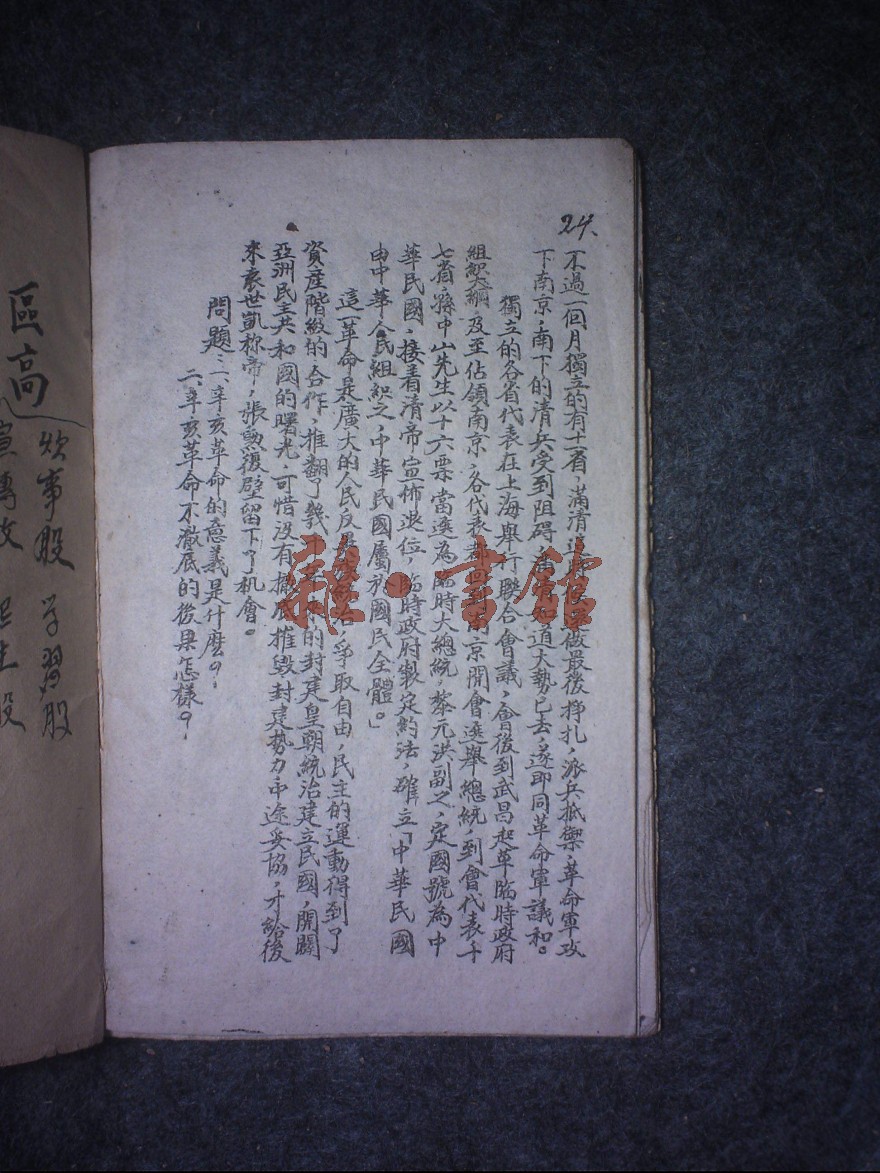 24.
不過一個月獨立的有十一省，滿清 做最後掙扎，派兵抵禦，革命軍攻
下南京，南下的清兵受到阻碍， 知道大勢已去，遂即同革命軍議和。
獨立的各省代表在上海舉行聯合會議，會後到武昌起草臨時政府
組織大綱，及至佔領南京，各代表都回到南京開會選舉總統，到會代表十
七省，孫中山先生以十六票當選為臨時大總統，黎元洪副之，定國號為中
華民國，接着清帝宣佈退位，臨時政府製定約法，確立「中華民國
由中華人民組織之，中華民國屬於國民全體。」
這一革命是廣大的人民反 統治，爭取自由，民主的運動得到了
資產階級的合作，推翻了幾千 的封建皇朝統治建立民國，開闢
亞洲民主共和國的曙光，可惜沒有撤底摧毀封建勢力中途妥協，才給後
來袁世凱称帝，張勳復辟留下了机會。
問題：一、辛亥革命的意義是什麽？
二、辛亥革命不澈底的後果怎樣？
區高
炊事股 学習股
雜·書館